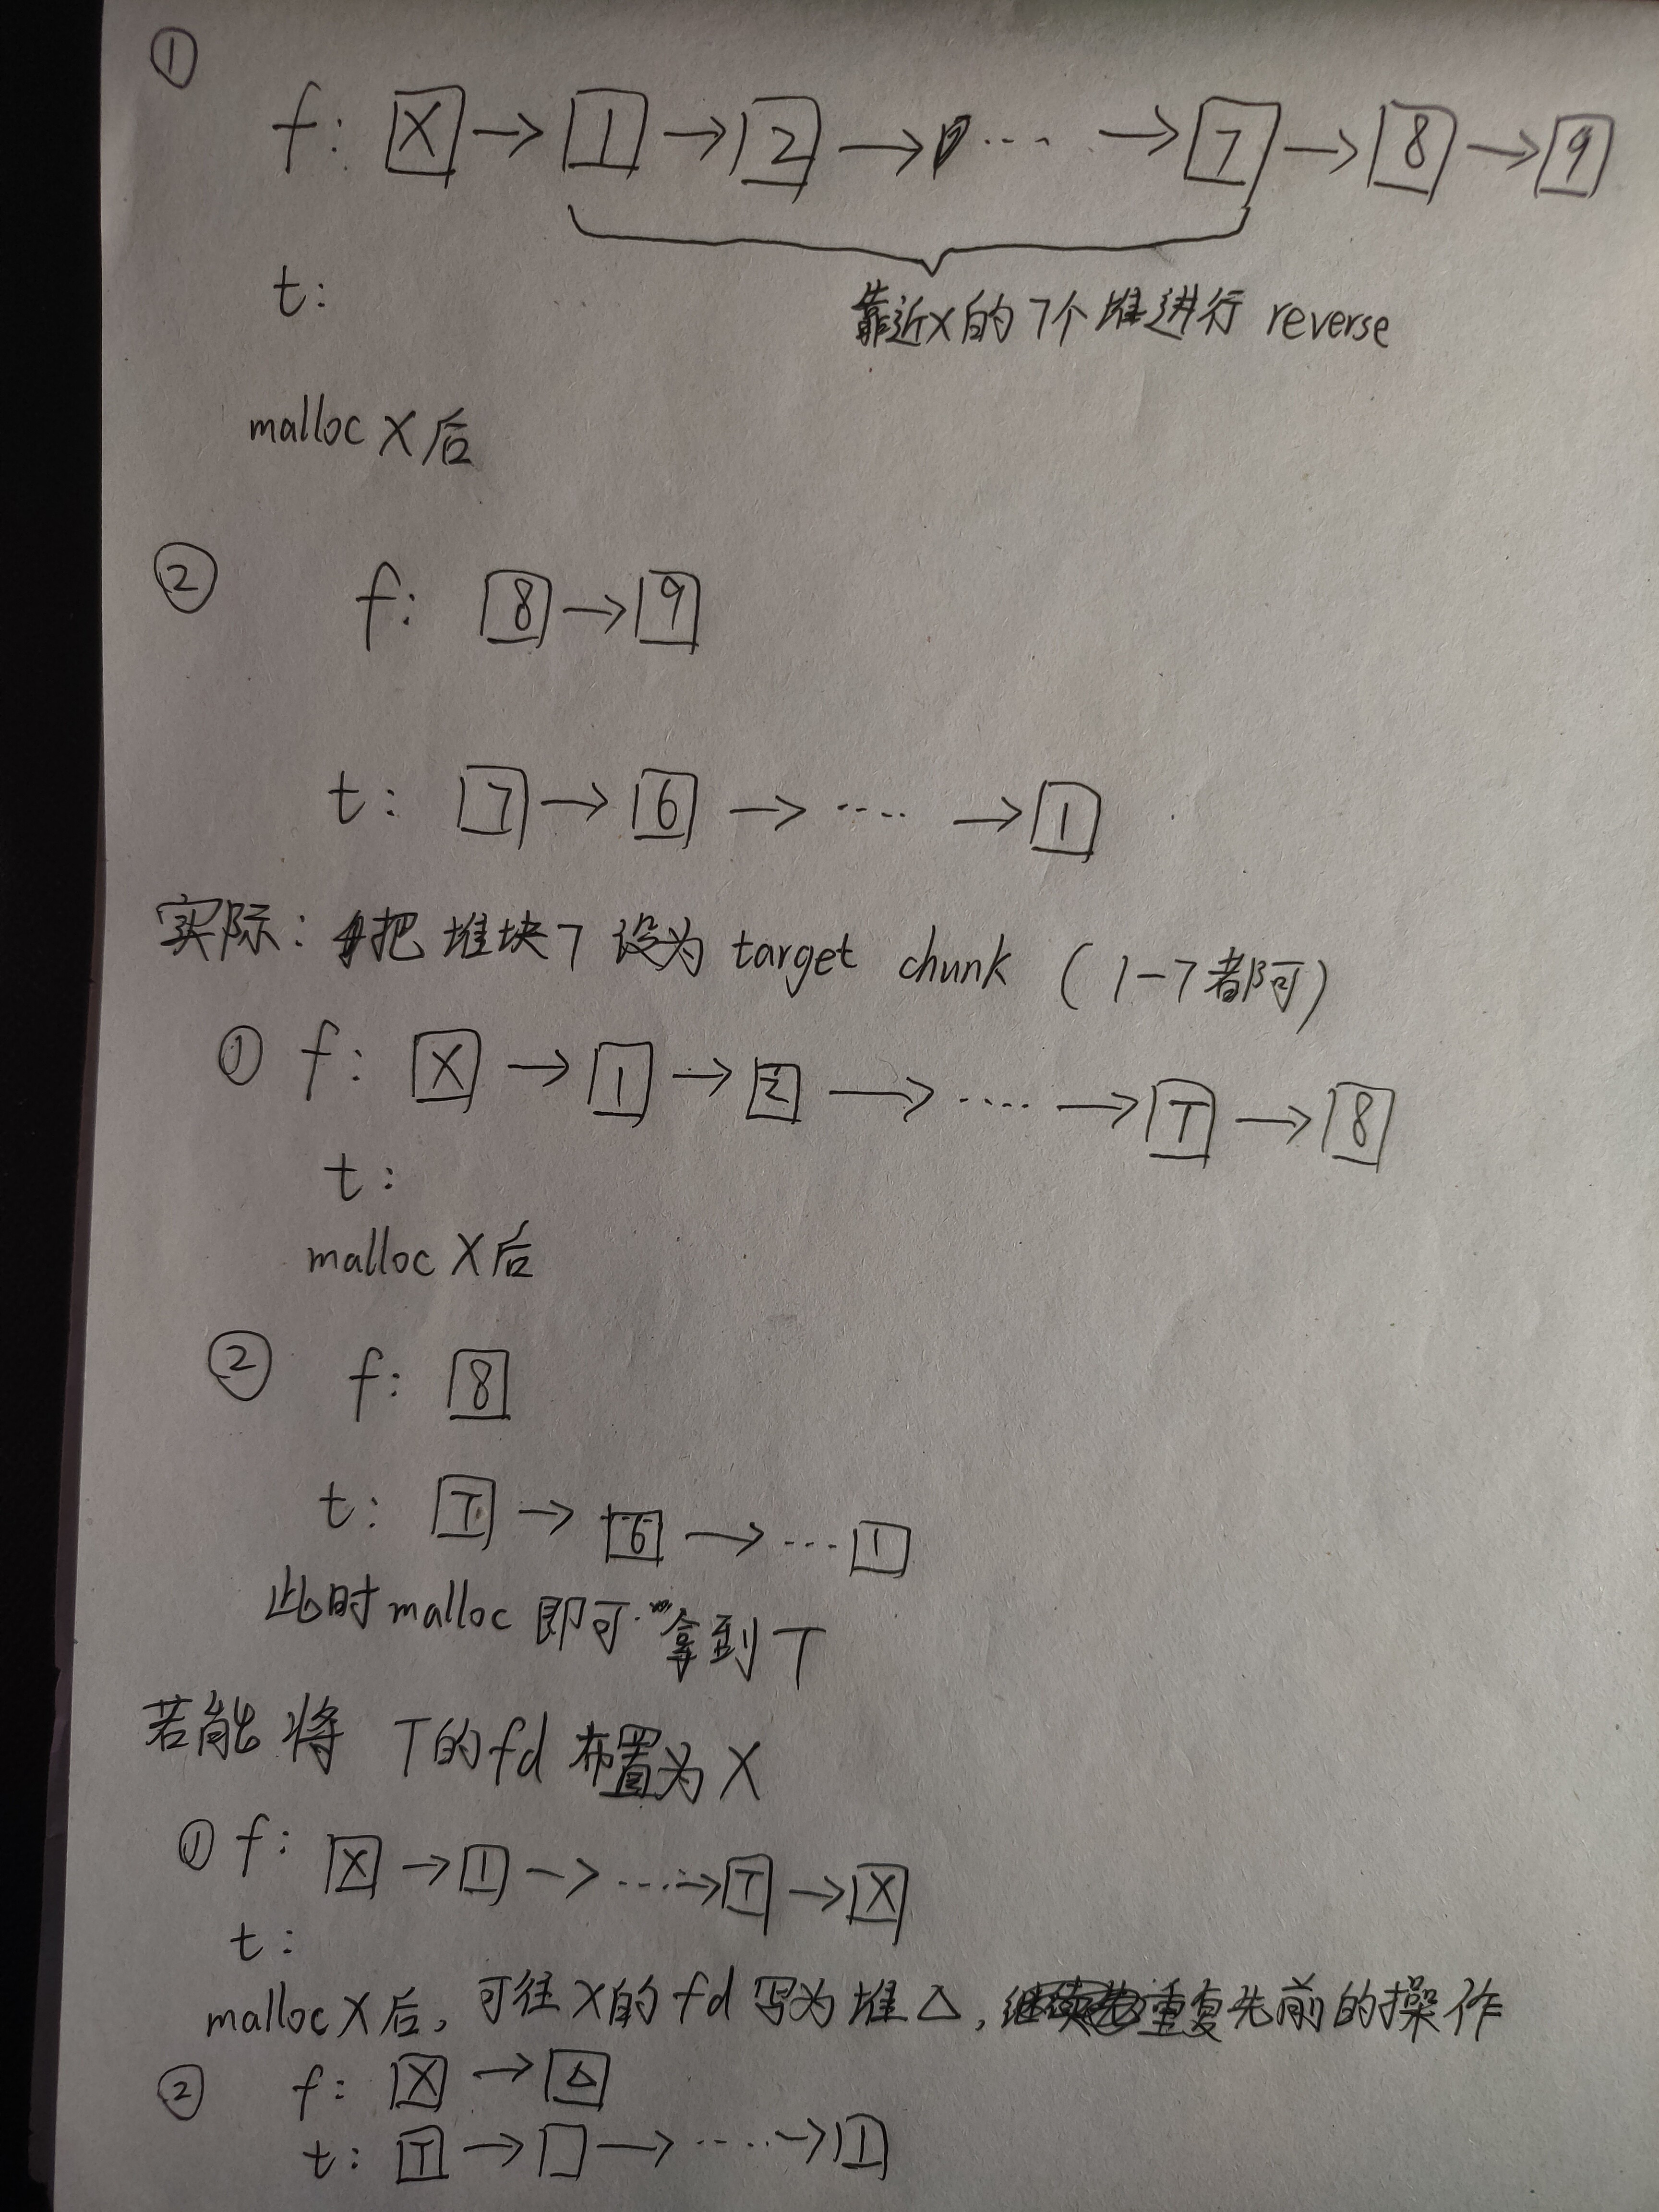 ①
f: X → 1 → 2 → ···· → 7 → 8 → 9
t:
靠近X的7个堆进行 reverse
malloc X后
② f: 8 → 9
t: 7 → 6 → ···· → 1
实际: 把堆块7设为 target chunk (1-7都可)
① f: X → 1 → 2 → ···· → T → 8
t:
malloc X后
② f: 8
t: T → 6 → ··· 1
此时malloc即可拿到T
若能将 T的fd布置为X
① f: X → 1 → ···· → T → X
t:
malloc X后, 可往X的fd写为堆△, 重复先前的操作
② f: X → △
t: T → □ → ···· → 1